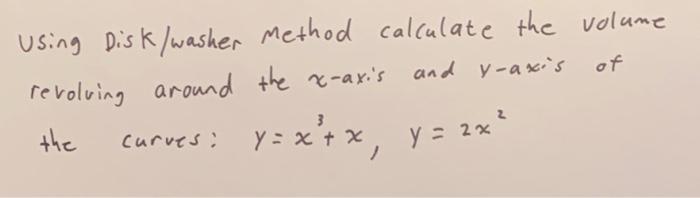 Using Disk/washer Method calculate the volume
revolving around the x-axis and y-axis of
the curves: y = x³ + x, y = 2x²